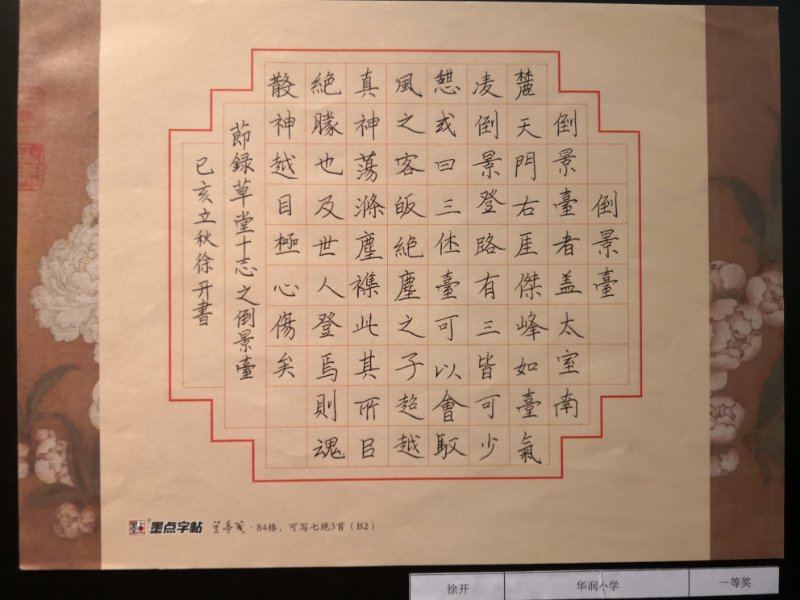 倒景臺
倒景臺者盖太室南
麓天門右厓傑峰如臺氣
凌倒景登路有三皆可少
憇或曰三休臺可以會馭
風之客皈絕塵之子超越
真神蕩滌塵襍此其所㠯
絕朦也及世人登焉則魂
散神越目極心傷矣
節録草堂十志之倒景臺
己亥立秋徐开書
墨点字帖 兰亭笺·84格,可写七绝3首(B2)
徐开 华润小学 一等奖